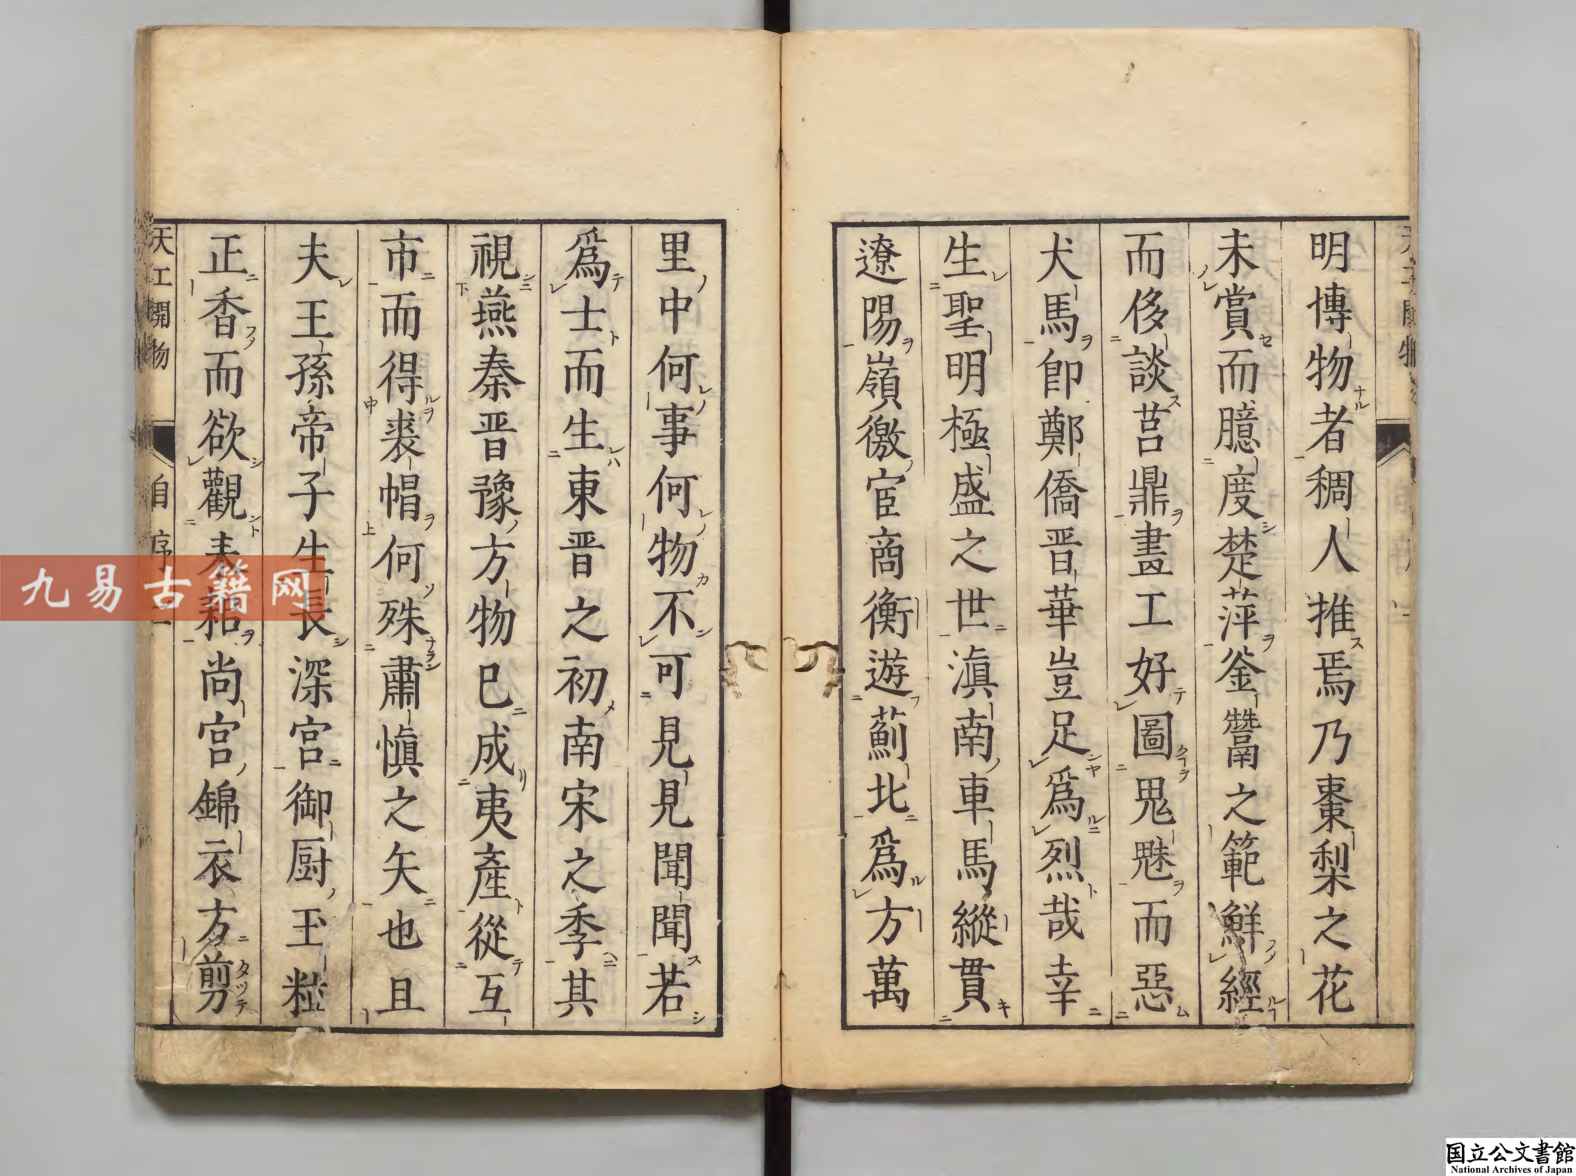 明博物者稠人推焉乃棗梨之花
未賞而臆度楚萍釜鬵之範鮮經
而侈談莒鼎畫工好圖鬼魅而惡
犬馬卽鄭僑晉華豈足爲烈哉幸
生聖明極盛之世滇南車馬縱貫
遼陽嶺徼宦商衡遊薊北爲方萬
里中何事何物不可見見聞聞若
爲士而生東晉之初南宋之季其
視燕秦晉豫方物已成夷產從互
市而得裘帽何殊肅愼之矢也且
夫王孫帝子生長深宮御厨玉粒
正香而欲觀耒耜尚宮錦衣方剪
天工開物 自序
九易古籍网
国立公文書館
National Archives of Japan